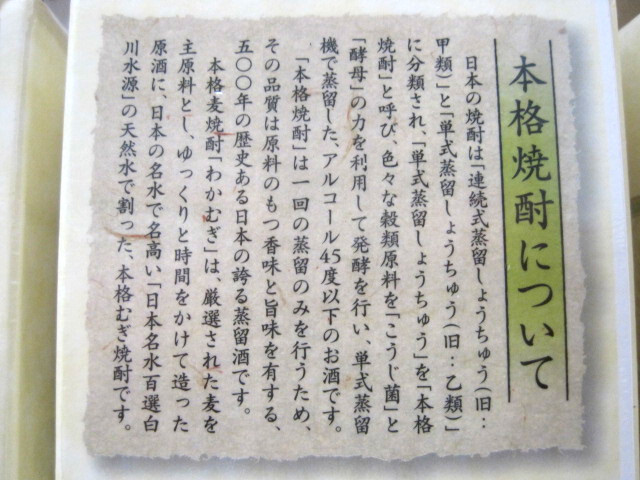 本格焼酎について
日本の焼酎は「連続式蒸留しょうちゅう(旧:
甲類)」と「単式蒸留しょうちゅう(旧:乙類)」
に分類され、「単式蒸留しょうちゅう」を「本格
焼酎」と呼び、色々な穀類原料を「こうじ菌」と
「酵母」の力を利用して発酵を行い、単式蒸留
機で蒸留した、アルコール45度以下のお酒です。
「本格焼酎」は一回の蒸留のみを行うため、
その品質は原料のもつ香味と旨味を有する、
五〇〇年の歴史ある日本の誇る蒸留酒です。
本格麦焼酎「わかむぎ」は、厳選された麦を
主原料とし、ゆっくりと時間をかけて造った
原酒に、日本の名水で名高い「日本名水百選白
川水源」の天然水で割った、本格むぎ焼酎です。